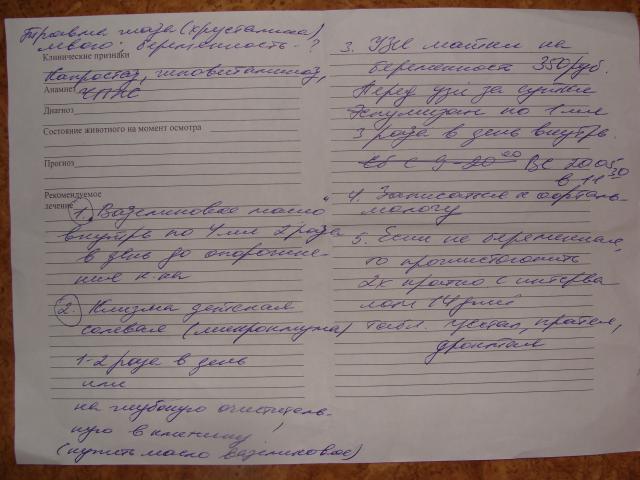 Травма глаза (хрусталика)
левого, беременность - ?
Клинические признаки
Капростаз, гиповитаминоз,
Анамнез ХПНС
Диагноз
Состояние животного на момент осмотра
Прогноз
Рекомендуемое
лечение
1. Вазелиновое масло
внутрь по 4 мл 2 раза
в день до опорожне-
ния к-ка
2. Клизма детская
солевая (микроклизма)
1-2 раза в день
или
на глубокую очиститель-
ную в клинику!
(купить масло вазелиновое)
3. УЗИ матки на
беременность 350 руб.
Перед узи за сутки
Эспумизан по 1 мл
3 раза в день внутрь.
Сб с 9-20 00 ВС 20.05
в 11 30
4. Записаться к офталь-
мологу
5. Если не беременная,
то проглистогонить
2х кратно с интерва
лом 14 дней
табл. празител,
дронтал